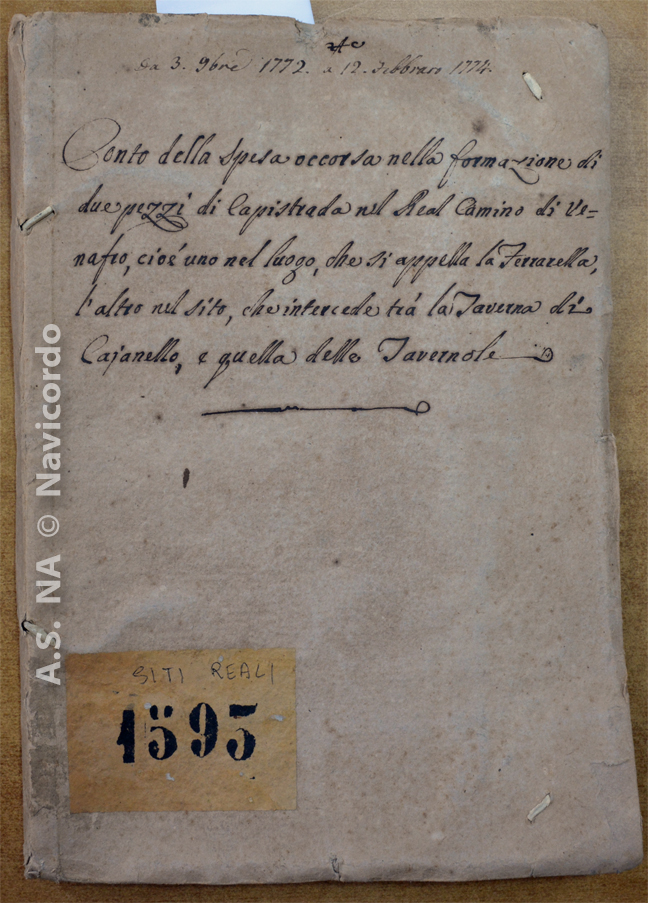 da 3. 9bre 1772. a 12. Febbraro 1774.
Conto della spesa occorsa nella formazione di
due pezzi di Capistrada nel Real Camino di Ve=
nafro, cioè uno nel luogo, che si appella la Ferrarella,
l'altro nel sito, che intercede trà la Taverna di
Cajanello, e quella delle Tavernole
SITI REALI
1595
A.S. NA © Navicordo